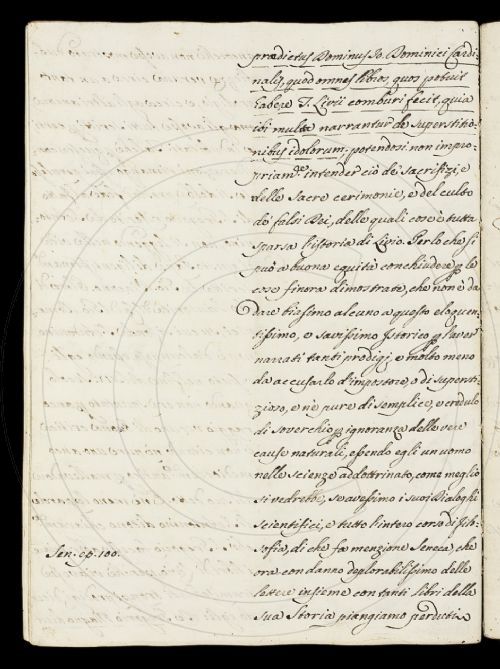 prædictus Dominus Jo. Dominici Cardi-
nalis, quod omnes libros, quos potuit
habere T. Livii comburi fecit, quia
ibi multæ narrantur de superstitio-
nibus idolorum; potendosi non impro-
priam.te intender ciò de' sacrifizj, e
delle sacre cerimonie, e del culto
de' falsi Dei, delle quali cose è tutta
sparsa l'istoria di Livio. Perloche si
può a buona equità conchiudere p le
cose finora dimostrate, che non è da
dare biasmo alcuno a questo eloquen-
tissimo, e savissimo Istorico p l'aver
narrati tanti prodigj, e molto meno
da accusarlo d'impostore, o di supersti-
zioso, e nè pure di semplice, e credulo
di soverchio p ignoranza delle vere
cause naturali, essendo egli un uomo
nelle scienze addottrinato, come meglio
si vedrebbe, se avessimo i suoi Dialoghi
scientifici, e tutto l'intero corso di filo-
sofia, di che fa menzione Seneca, che
Sen. ep. 100.
ora con danno deplorabilissimo delle
lettere insieme con tanti libri della
sua Storia piangiamo perduti.